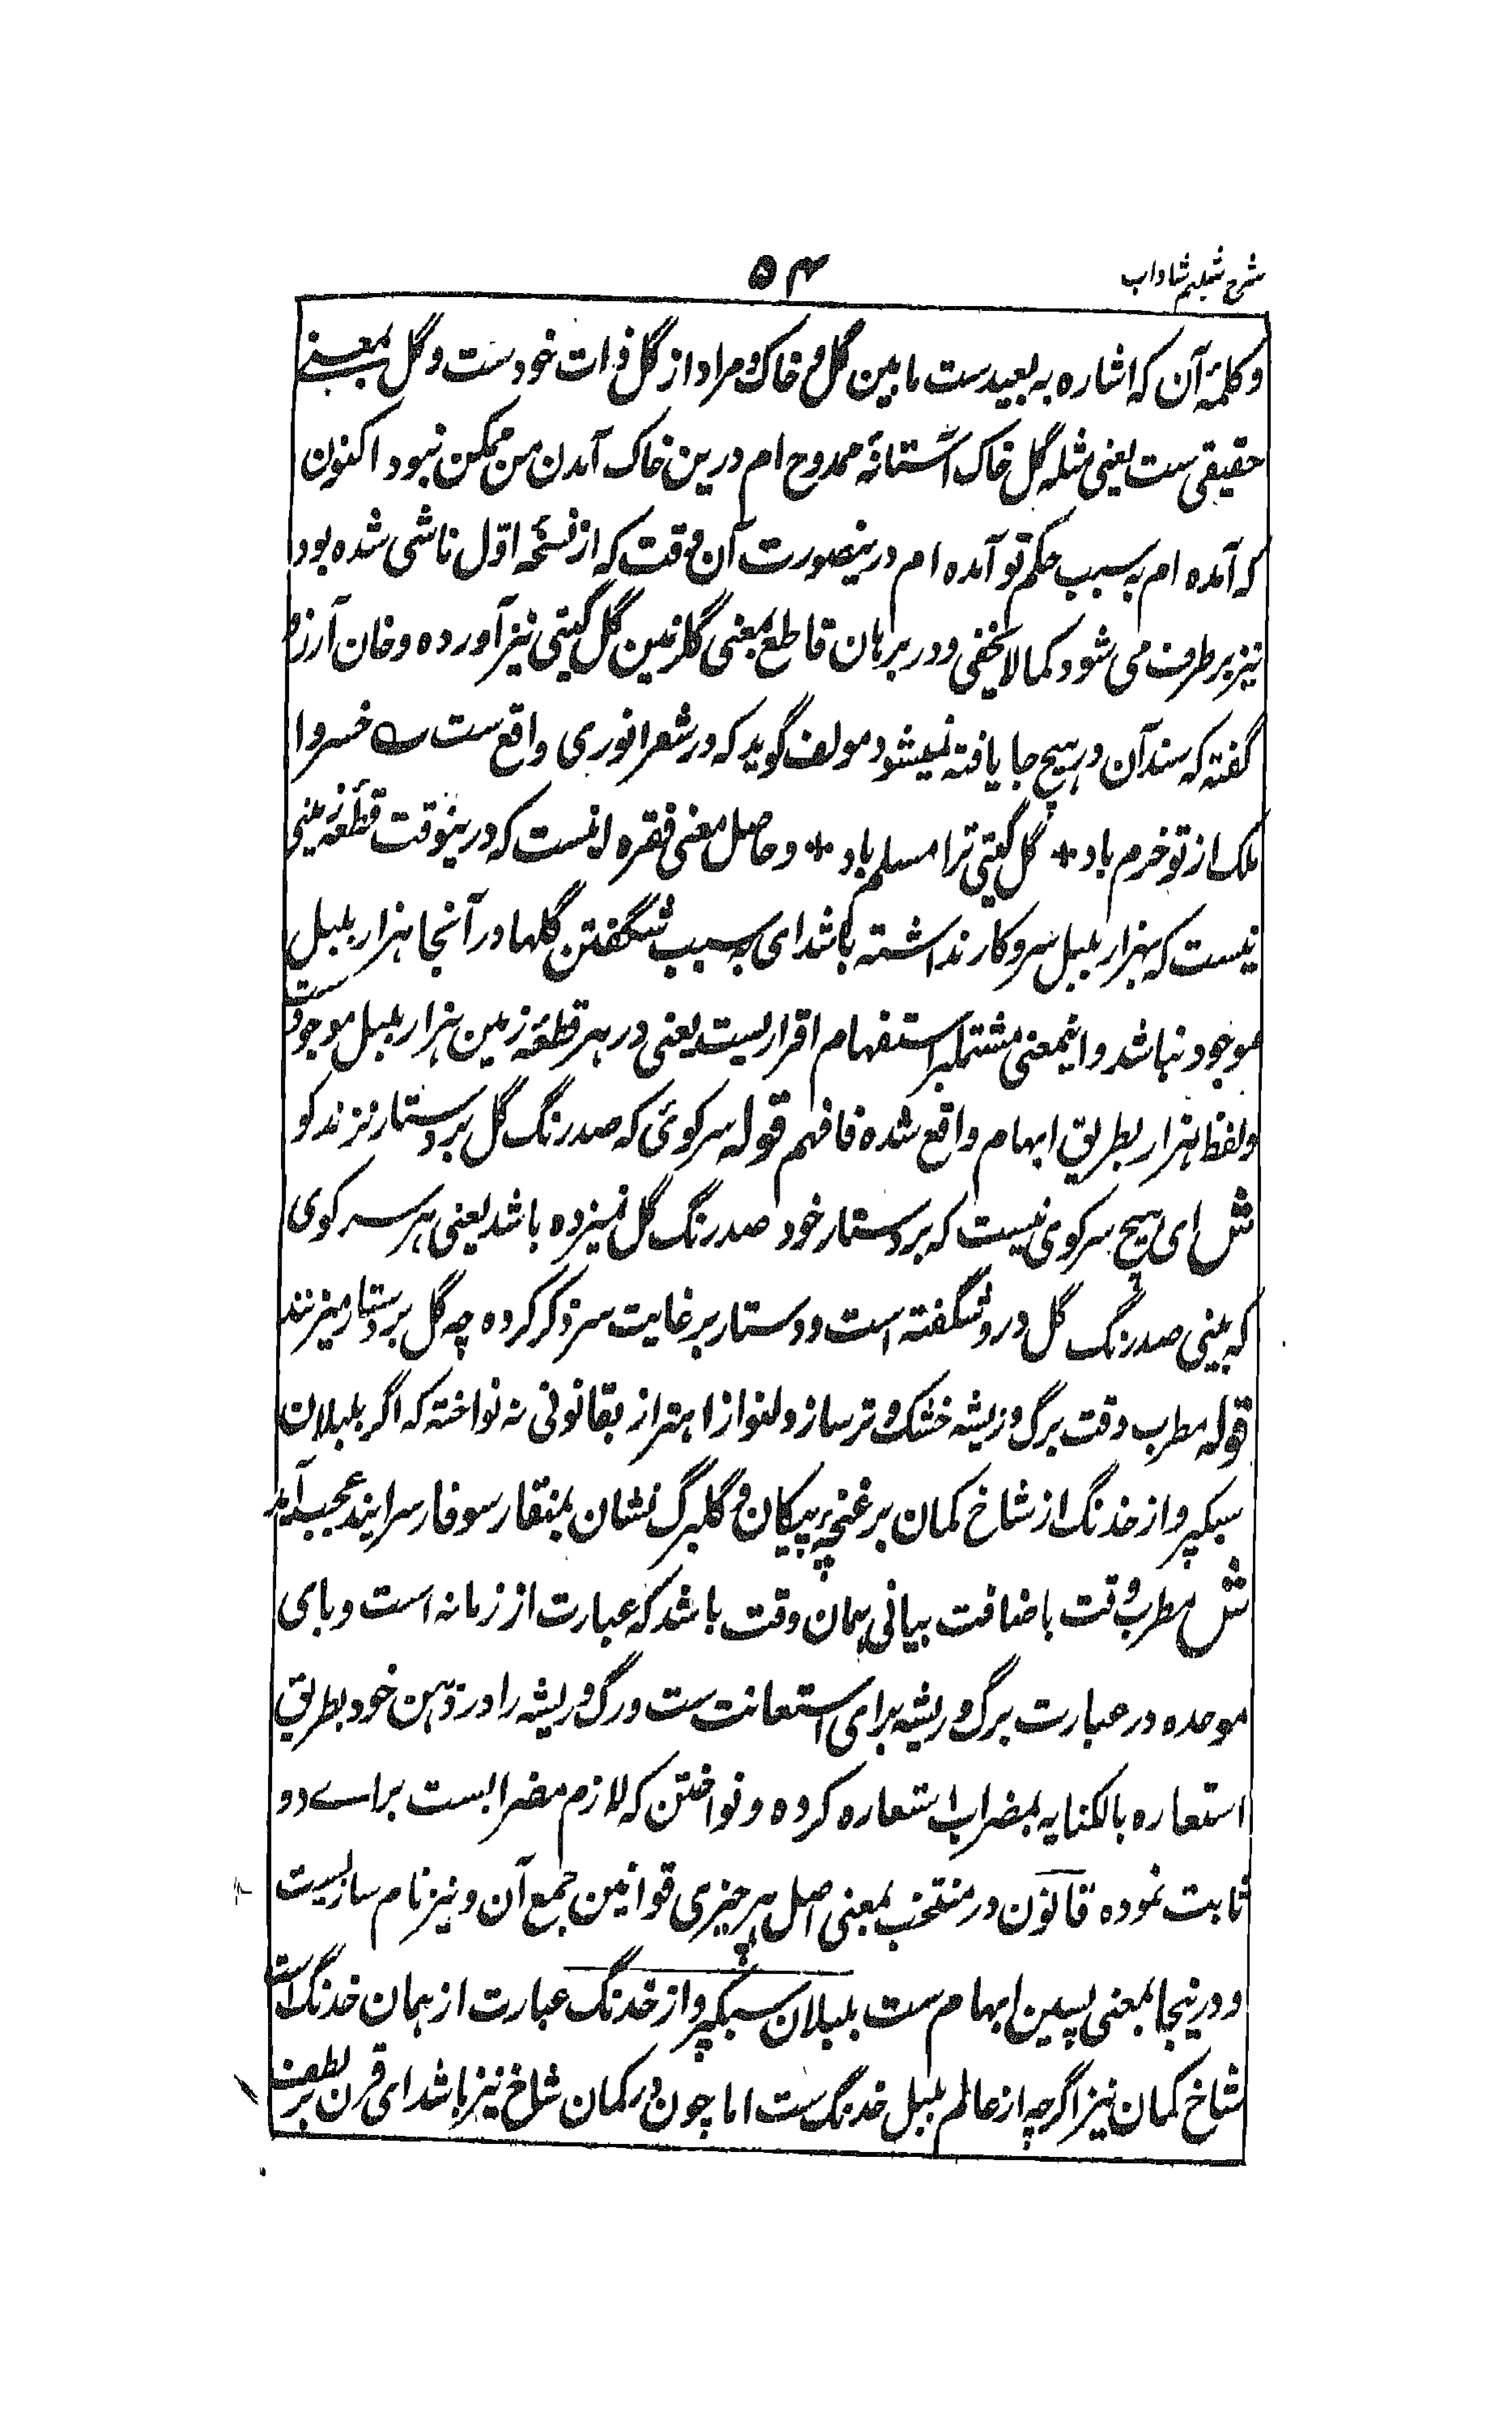 شرح شبنم شاداب
۵۴
وکلمهٔ آن که اشاره به بعیدست مابین گل و خاک و مراد از گل ذات خودست و گل بمعنی
حقیقی ست یعنی مثله گل خاک آستانهٔ ممدوح ام درین خاک آمدن من ممکن نبود اکنون
که آمده ام به سبب حکم تو آمده ام درینصورت آن وقت که از نسخهٔ اول ناشی شده بود
نیز برطرف می شود کما لا یخفی و در برهان قاطع بمعنی گلزمین گل گیتی نیز آورده و خان آرزو
گفته که سند آن در هیچ جا یافته نمیشود مولف گوید که در شعر انوری واقع ست ؎ خسروا
ملک از تو خرم باد * گل گیتی ترا مسلم باد * و حاصل معنی فقره اینست که درینوقت قطعهٔ زمینی
نیست که بهزار بلبل سروکار نداشته باشد ای به سبب شگفتن گلها در آنجا هزار بلبل
موجود نباشد و اینمعنی مشتمل بر استفهام اقراریست یعنی در هر قطعهٔ زمین هزار بلبل موجود ست
ولفظ هزار بطریق ایهام واقع شده فافهم قوله سرکوئی که صد رنگ گل بر دستار نزند کو
ش ای هیچ سرکوی نیست که بر دستار خود صد رنگ گل نمیزده باشد یعنی هر سر کوی
که بینی صد رنگ گل درو شگفته است و دستار بر غایت سر ذکر کرده چه گل بر دستار میزنند
قوله مطرب وقت برگ و ریشه خشک و تر ساز دلنواز اهتزاز بقانونی نه نواخته که اگر بلبلان
سبکپرواز خدنگ از شاخ کمان بر غنچه پیکان و گلبرگ نشان بمنقار سوفار سرایند عجب آید
ش مطرب وقت باضافت بیانی همان وقت باشد که عبارت از زمانه است و بای
موحده در عبارت برگ و ریشه برای استعانت ست و رگ و ریشه را در ذهن خود بطریق
استعاره بالکنایه بمضراب استعاره کرده و نواختن که لازم مضرابست برای دو
ثابت نموده قانون در منتخب بمعنی اصل هر چیزی قوانین جمع آن و نیز نام سازیست
و درینجا بمعنی پسین ایهام ست بلبلان سبکپرواز خدنگ عبارت از همان خدنگ است
شاخ کمان نیز اگرچه از عالم بلبل خدنگ ست اما چون در کمان شاخ نیز باشد ای قرن لطف